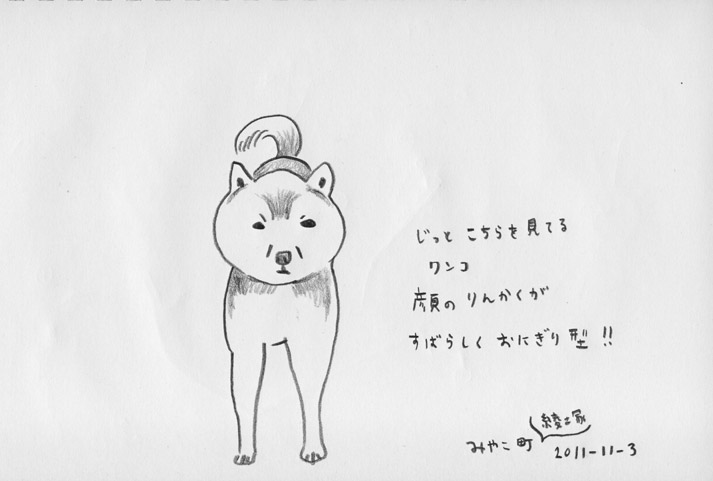 じっと こちらを見てる
ワンコ
顔の りんかくが
すばらしく おにぎり型!!
綾塚
みやこ町
2011-11-3